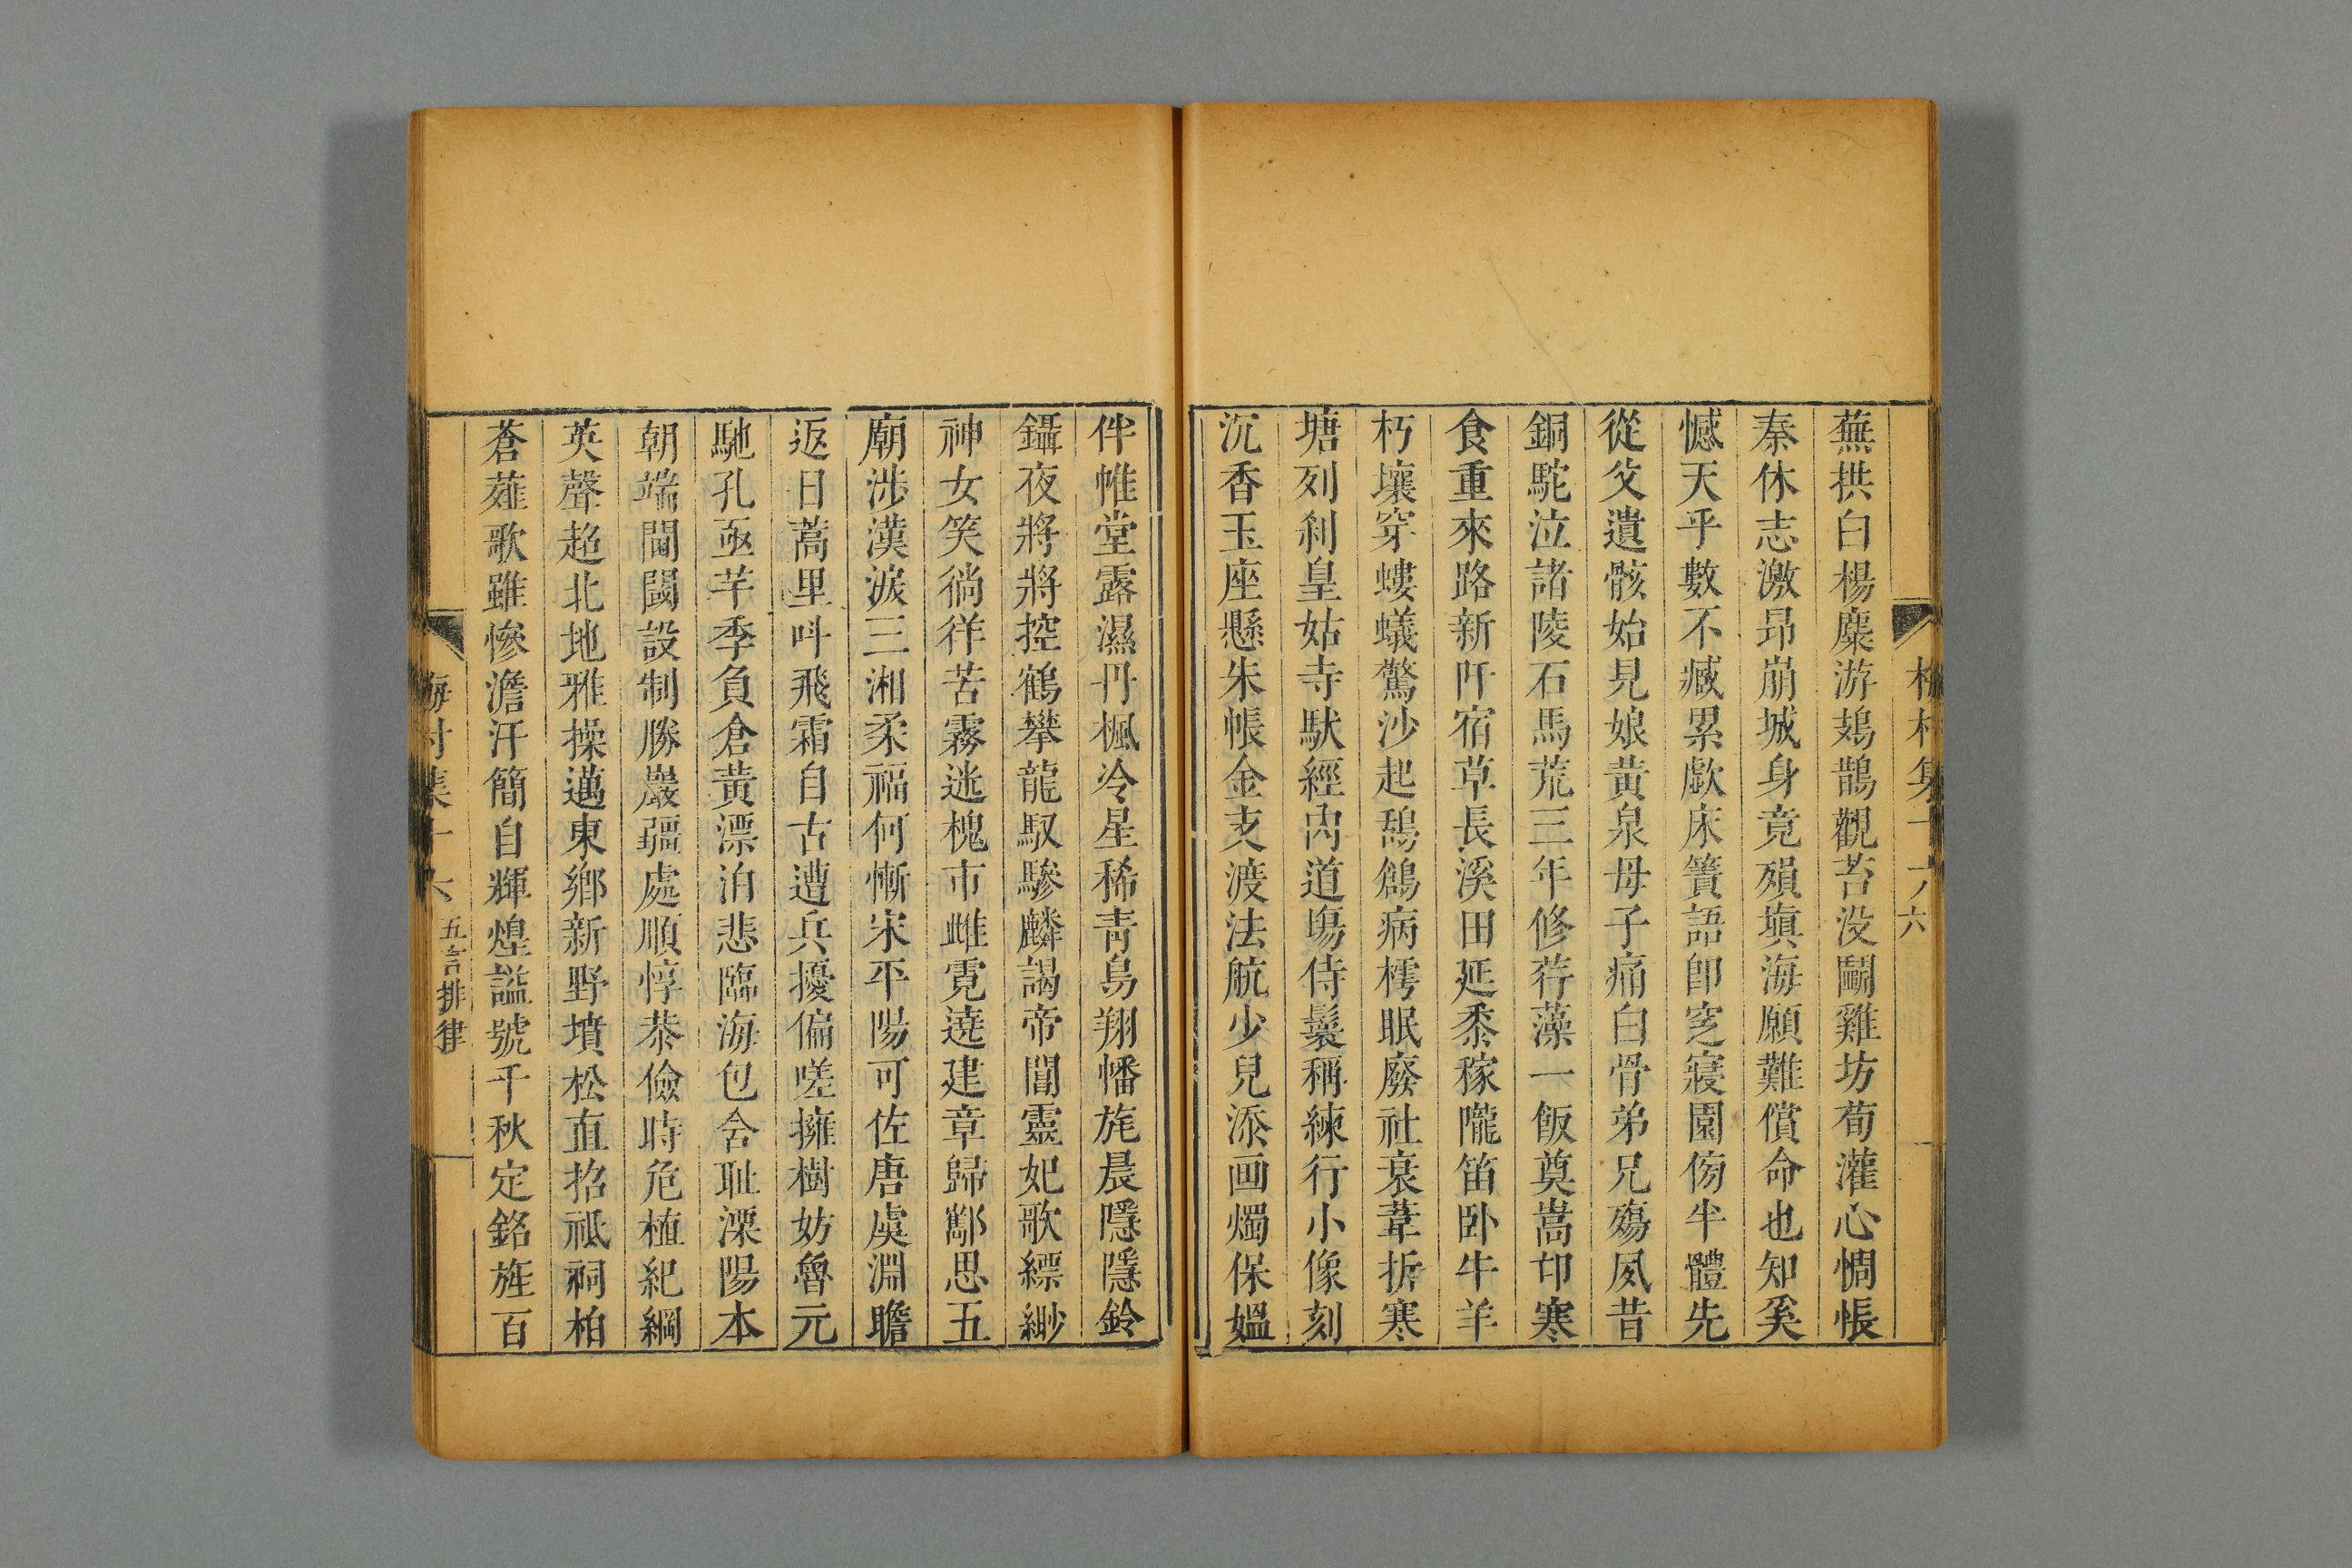 蕪拱白楊麋游鳷鵲觀苔没鬭雞坊荀灌心惆悵
秦休志激昂崩城身竟殞塡海願難償命也知奚
憾天乎數不臧累歔床簀語卽窆寢園傍半體先
從父遺骸始見娘黃泉母子痛白骨弟兄殤夙昔
銅駝泣諸陵石馬荒三年修荇藻一飯奠嵩邙寒
食重來路新阡宿草長溪田延黍稼隴笛卧牛羊
朽壤穿螻蟻驚沙起鴰鶬病樗眠廢社衰葦折寒
塘列刹皇姑寺馱經内道塲侍鬟稱練行小像刻
沉香玉座懸朱帳金支渡法航少兒添画燭保媼
伴帷堂露濕丹楓冷星稀靑鳥翔幡旄晨隱隱鈴
鑷夜將將控鶴攀龍馭驂麟謁帝閽靈妃歌縹緲
神女笑徜徉苦霧迷槐市雌霓遶建章歸酅思五
廟涉漢淚三湘柔福何慚宋平陽可佐唐虞淵瞻
返日蒿里呌飛霜自古遭兵擾偏嗟擁樹妨魯元
馳孔亟芊季負倉黃漂泊悲臨海包含耻溧陽本
朝端閫閾設制勝巖疆處順惇恭儉時危植紀綱
英聲超北地雅操邁東鄉新野墳松直招祗祠柏
蒼薤歌雖慘澹汗簡自輝煌謚號千秋定銘旌百
五言排律